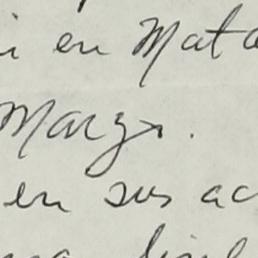 i en Mata
Marzo.
en sus ac